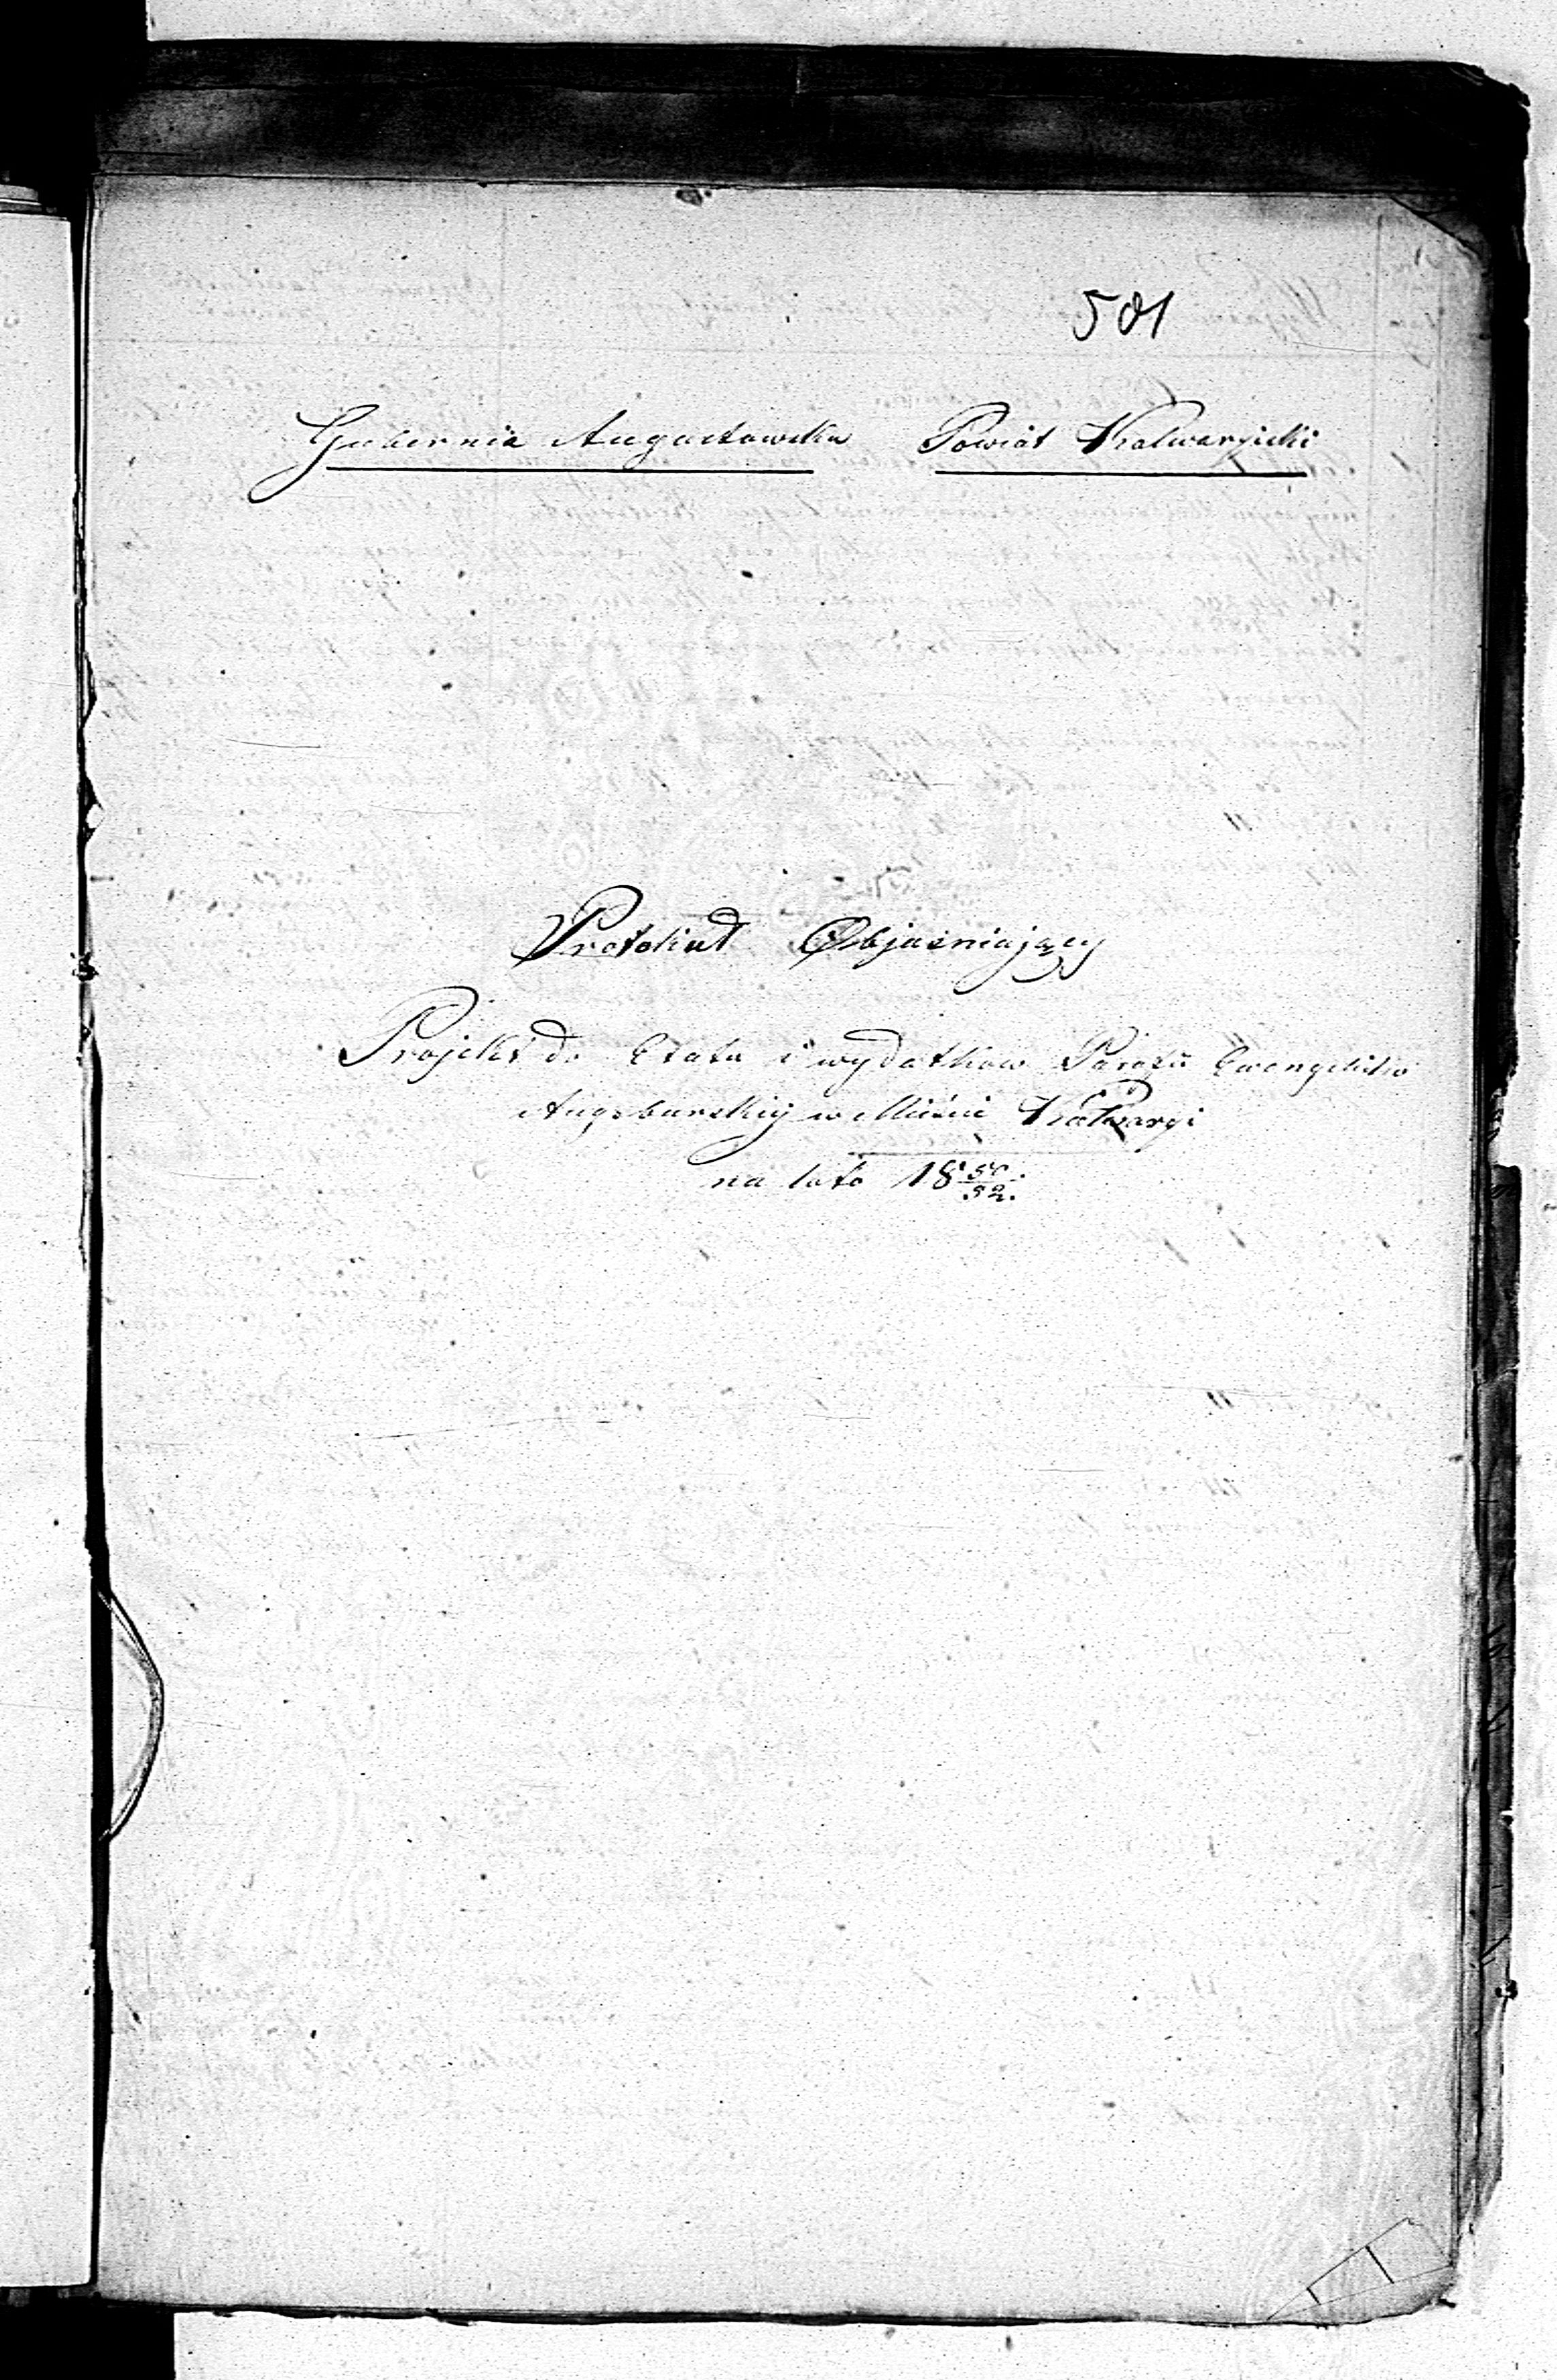 501
Gubernia Augustowska Powiat Kalwaryjski
Protokuł Objaśniający
Projekt do Etatu i wydatkow Parafii Ewangelicko
Augsburskiej w Mieście Kalwaryi
na lata 18 50/52.